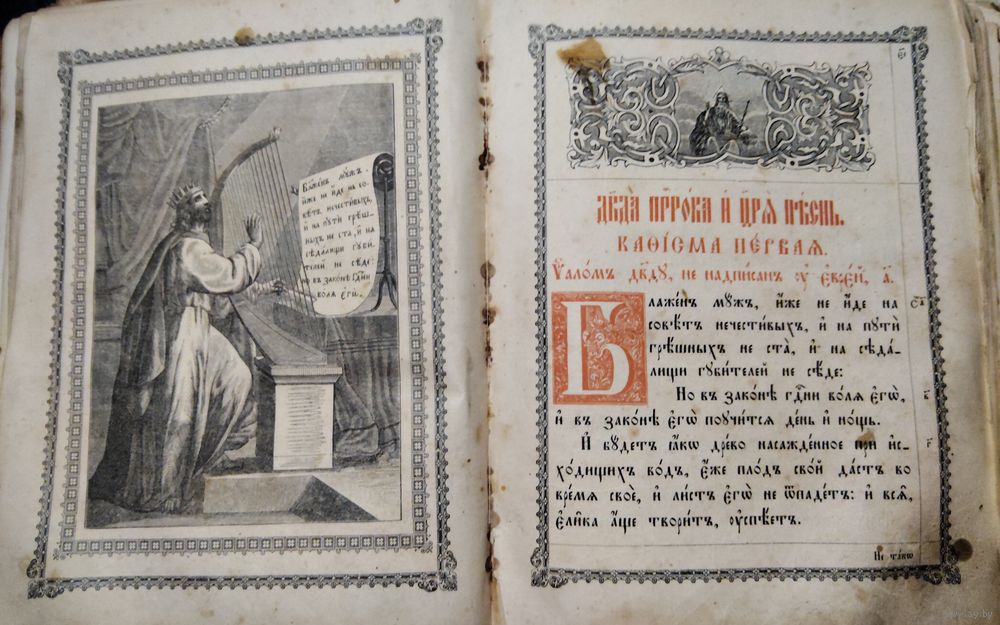 Блаже́нъ мꙋ́жъ.
и҆́же не и҆́де на со-
вѣ́тъ нечести́выхъ,
и҆ на пꙋтѝ грѣ́ш-
ныхъ не ста̀, и҆ на
сѣда́лищи гꙋби́-
телей не сѣ́де:
но въ зако́нѣ гдⷭ҇ни
во́ля є҆гѡ̀.
Дв҃да прⷪ҇ро́ка и҆ цр҃ѧ̀ пѣ́снь.
Каѳі́сма пе́рваѧ.
Ѱало́мъ дв҃дꙋ, не надпи́санъ ᲂу҆ є҆вре́й, а҃.
Блаже́нъ мꙋ́жъ, и҆́же не и҆́де на
совѣ́тъ нечести́выхъ, и҆ на пꙋтѝ
грѣ́шныхъ не ста̀, и҆ на сѣда́-
лищи гꙋби́телей не сѣ́де:
Но въ зако́нѣ гдⷭ҇ни во́лѧ є҆гѡ̀,
и҆ въ зако́нѣ є҆гѡ̀ поꙋчи́тсѧ де́нь и҆ но́щь.
И҆ бꙋ́детъ ꙗ҆́кѡ дре́во насажде́нное при и҆с-
хо́дищихъ во́дъ, є҆́же пло́дъ сво́й да́стъ во
вре́мѧ своѐ, и҆ ли́стъ є҆гѡ̀ не ѿпаде́тъ: и҆ всѧ̑,
є҆ли̑ка а҆́ще твори́тъ, ᲂу҆спѣ́етъ.
Не та́кѡ